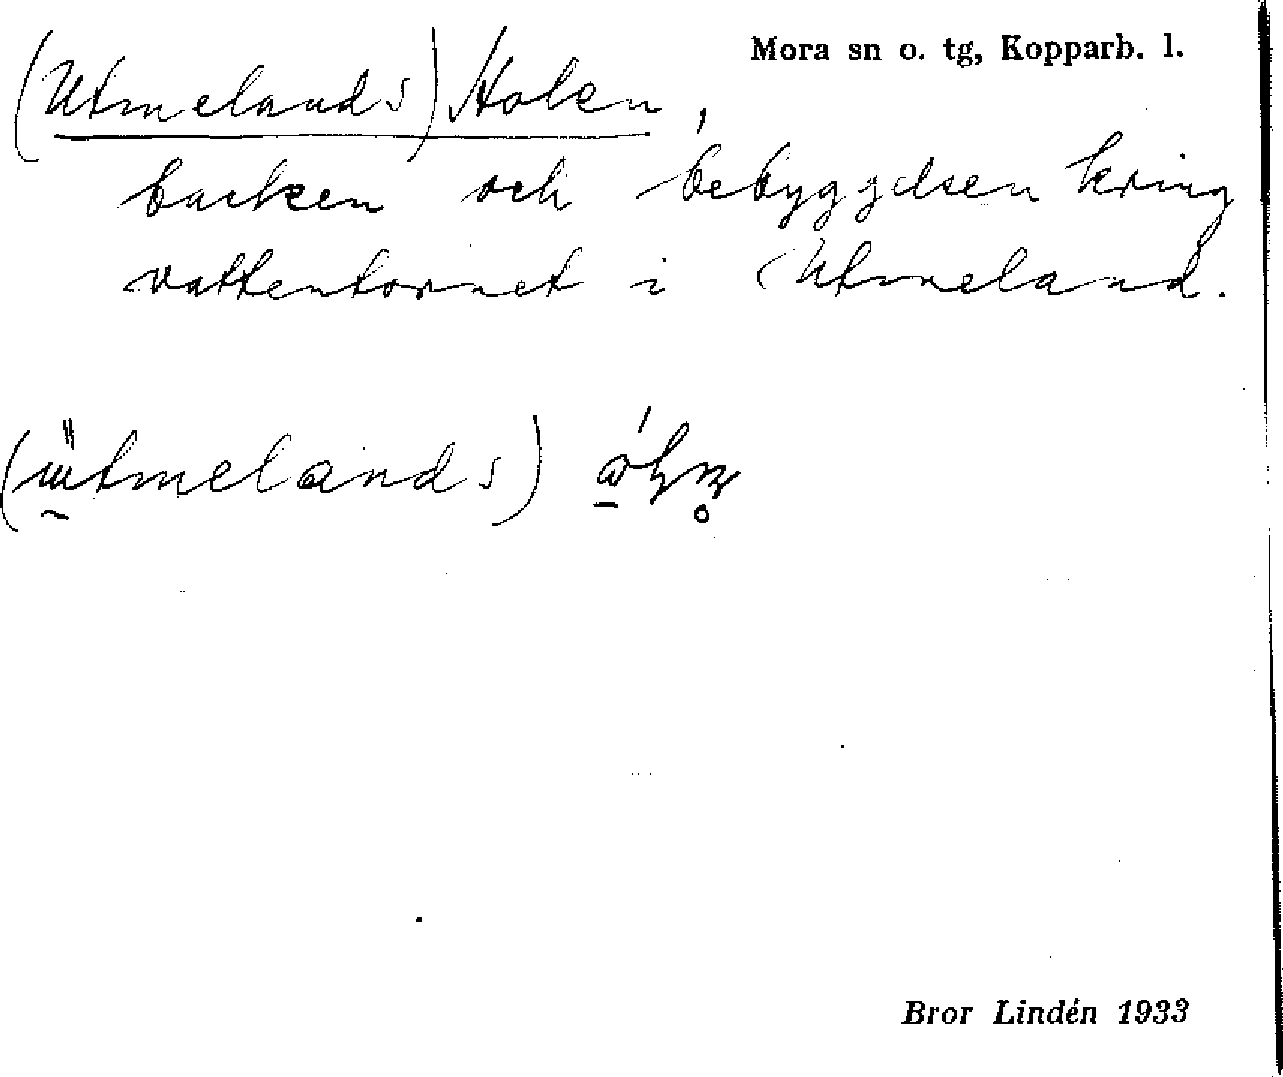 Mora sn o. tg, Kopparb. l.
(Utmelands) Holen,
backen och bebyggelsen kring
vattentornet i Utmeland.
(ütmelands)
Bror Lindén 1933